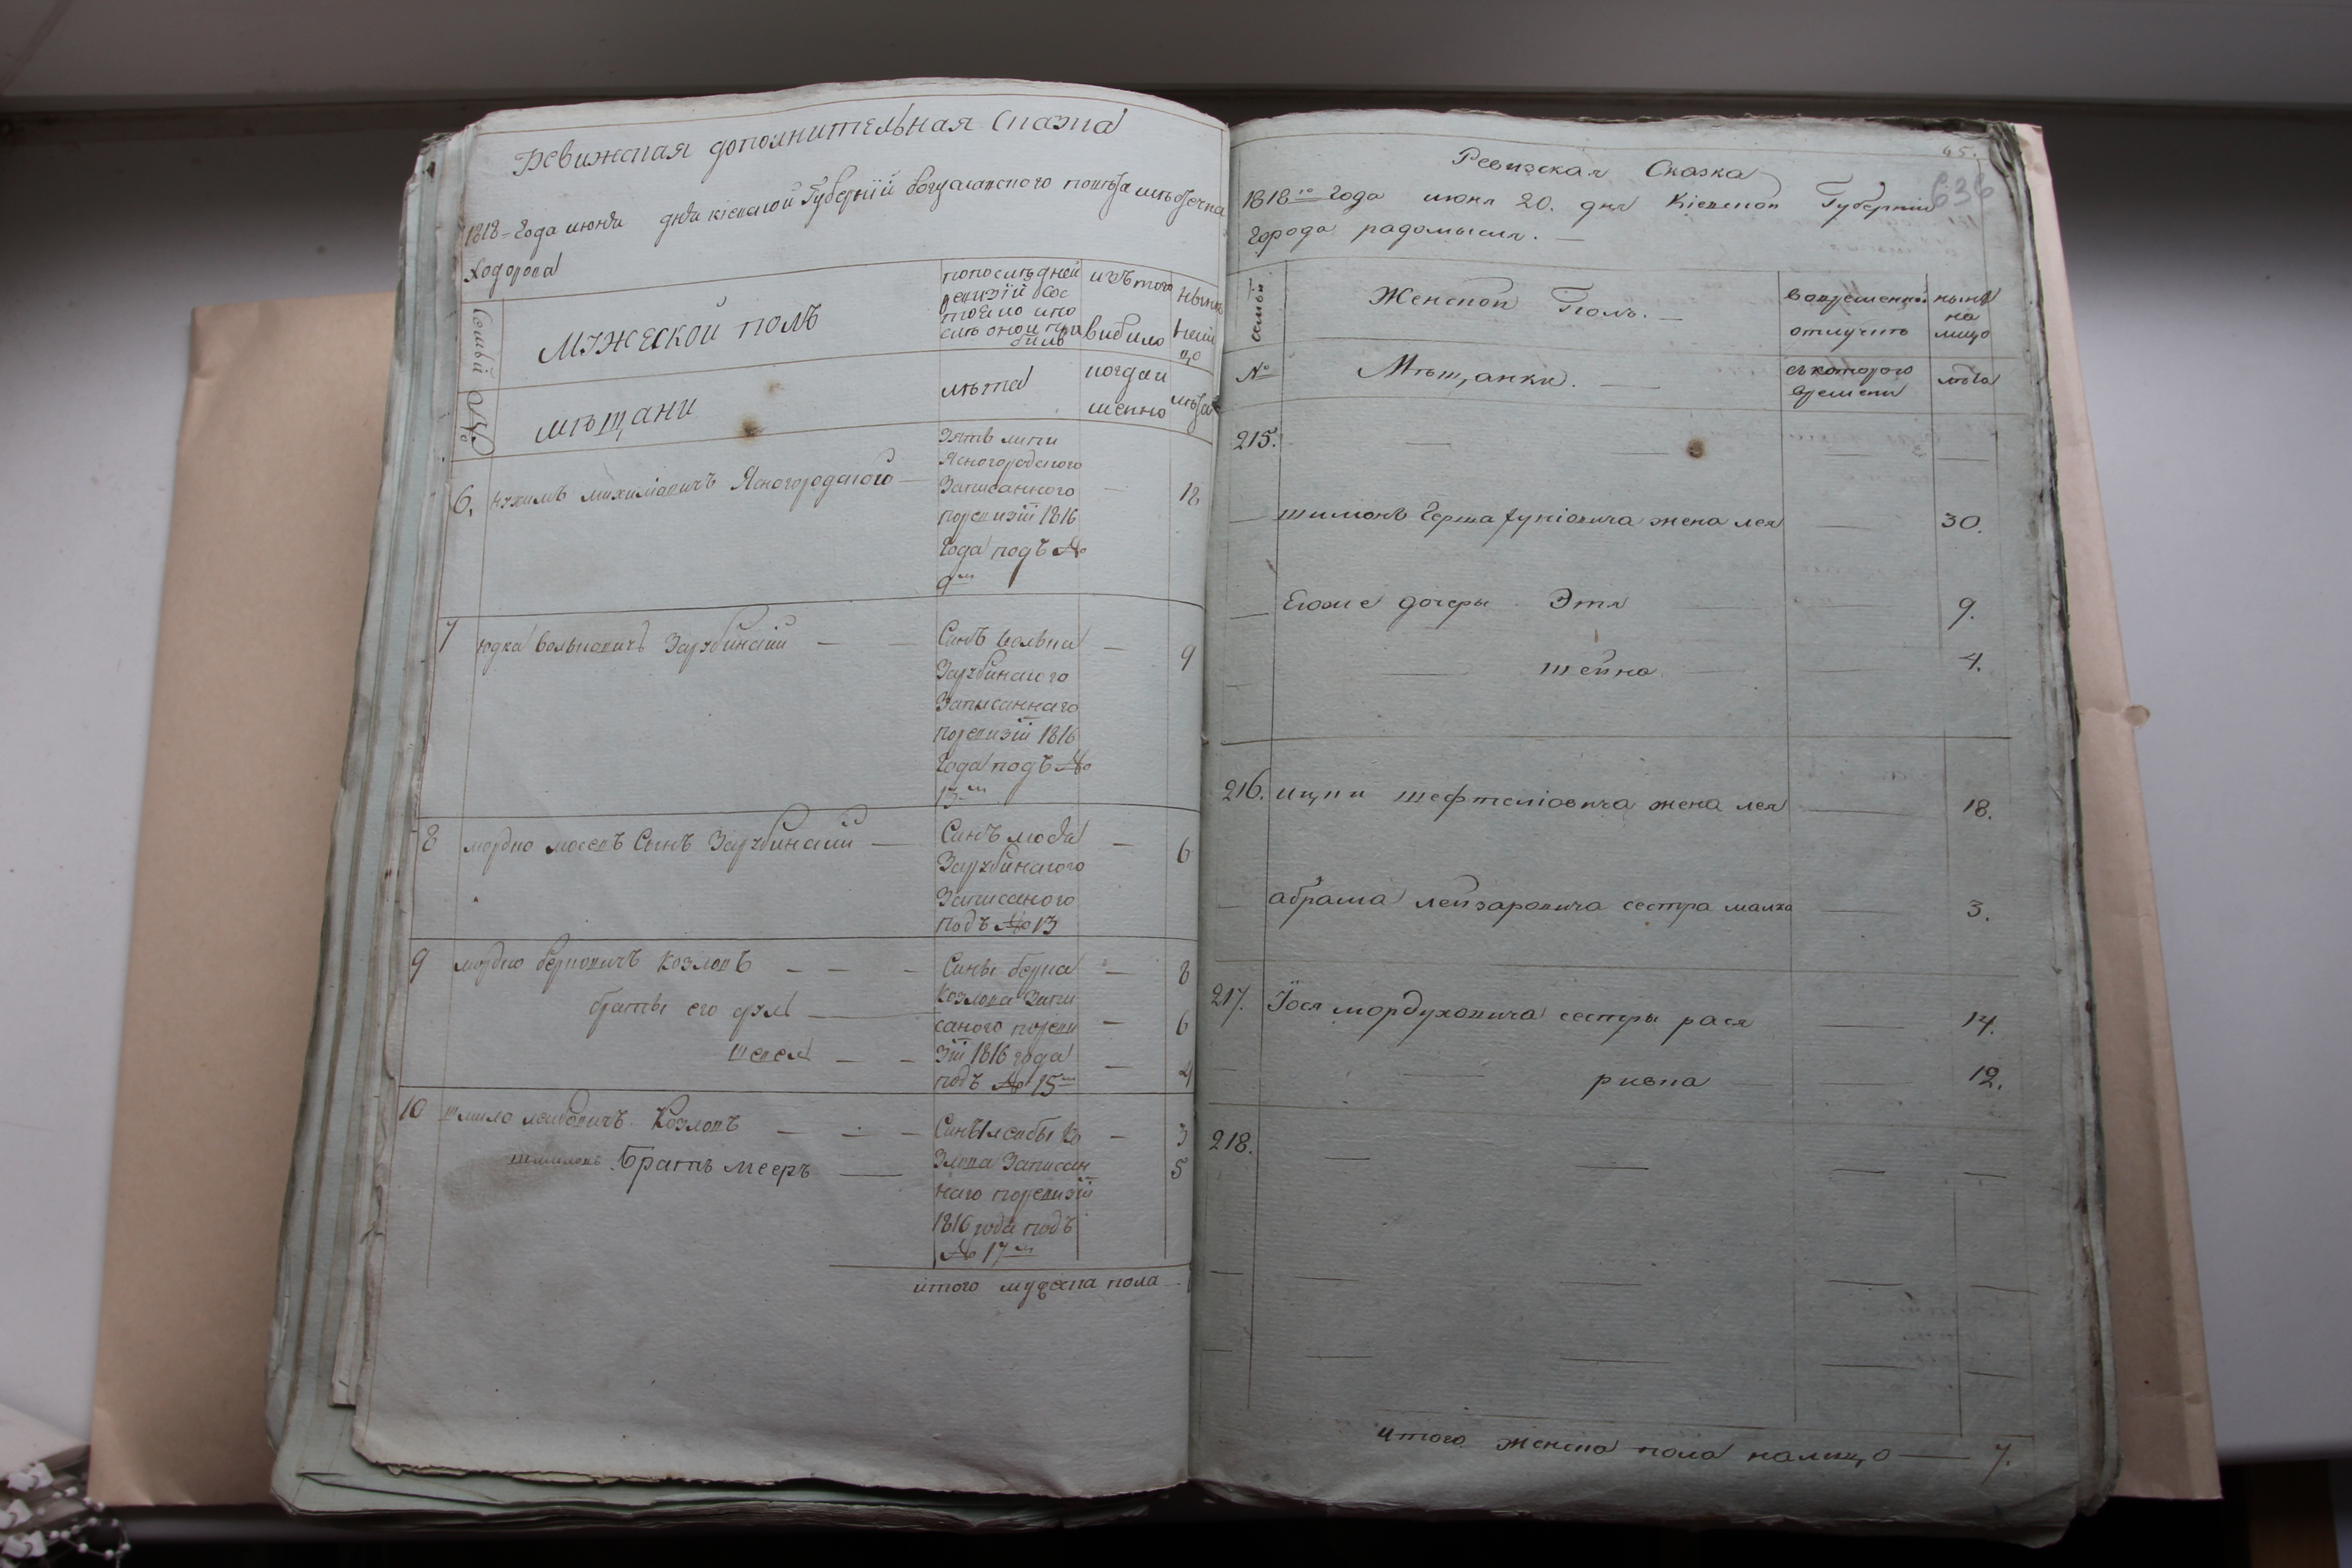 Ревижская дополнительная Сказка
1818 года июня дня кіевской Губерніи богуславского повѣта мѣстечка
Ходорова
Семьи
МУЖЕСКОЙ ПОЛЪ
попослѣдней
ревизіи сос
тояло и по
слѣ оной при
было
изъ того
вибило
нынѣ
нали
цо
№
мѣщани
лѣта
когда и
менно
лѣта
6. нухимъ михилювичъ Ясногородского — 18
зять липи
Ясногородского
Записанного
поревизіи 1816
года подъ №
9м
7 юдка волькович Зарубинскіи — — 9
Синъ волька
Зарубинского
Записаннаго
поревизіи 1816
года подъ №
13м
8 мордко мосевъ Сынъ Зарубинскіи — 6
Синъ мосѣя
Зарубинского
Записаного
подъ № 13
9 мордко берковичъ козловъ — — — 8
братьи его 6
4
Сины берка
козлова Запи
саного за реви
зіи 1816 года
подъ № 15м
10 шмило леибовичъ Козловъ — — — 3
Братъ мееръ — 5
Синъ леибы ко
злова Записан
наго поревизіи
1816 года подъ
№ 17м
итого мужеска пола
45.
636
Ревизская Сказка
1818го года июня 20. дня Кіевской Губерніи
города радомысля. —
Семьи
Женской Полъ. —
вовременной
отлучкѣ
нынѣ
на
лицо
№
Мѣщанки. —
съ которого
времени
лѣта
215. — — — —
— жена лея — 30.
— Егоже дочеры Этя — 9.
— — шейна — 4.
216. ицки шефтелювича жена лея — 18.
— абрама лейзаровича сестра малка — 3.
217. Іося мордуховича сестры рася — 14.
— — ривка — 12.
218. — — — —
итого женска пола налицо — 7.